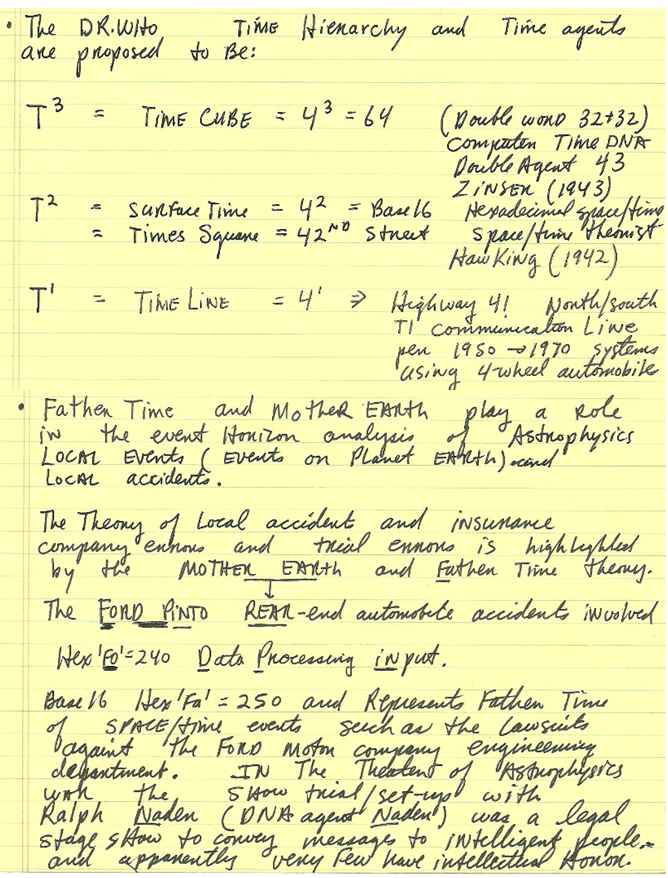 • The DR.WHO TIME Hierarchy and Time agents
are proposed to Be:
T³ = TIME CUBE = 4³ = 64 (Double word 32+32)
Computer Time DNA
Double Agent 43
ZINSER (1943)
T² = SURFACE Time = 4² = Base 16 Hexadecimal space/time
= Times Square = 42ND Street space/time theorist
Hawking (1942)
T¹ = TIME LINE = 4¹ ⇒ Highway 41 North/south
T1 communication Line
per 1950 → 1970 systems
using 4-wheel automobile
• Father Time and MOTHER EARTH play a role
in the event Horizon analysis of Astrophysics
LOCAL Events (Events on Planet EARTH) and
Local accidents.
The Theory of Local accident and insurance
company errors and trial errors is highlighted
by the MOTHER EARTH and Father Time theory.
↓
The FORD PINTO REAR-end automobile accidents involved
Hex 'F0' = 240 Data Processing input.
Base 16 Hex 'Fa' = 250 and Represents Father Time
of SPACE/time events such as the Lawsuits
against the FORD Motor company engineering
department. IN The Theater of Astrophysics
war the show trial/set-up with
Ralph Nader (DNA agent Nader) was a legal
stage show to convey messages to intelligent people -
and apparently very few have intellectual Honor.